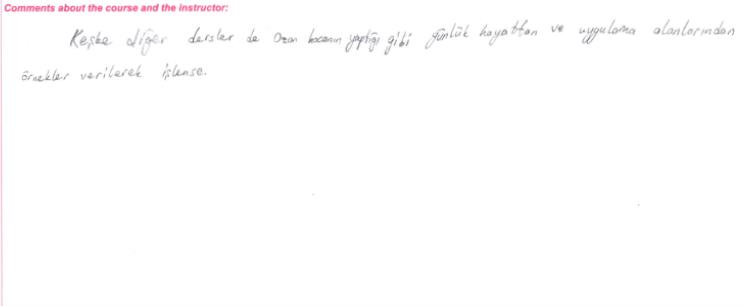 Comments about the course and the instructor:
Keşke diğer dersler de Ozan hocanın yaptığı gibi günlük hayattan ve uygulama alanlarından
örnekler verilerek işlense.